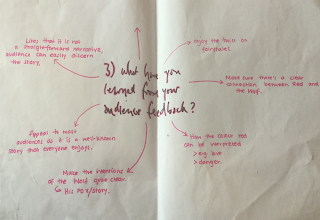 Likes that it is not
a straight-forward narrative,
audience can easily discern
the story.
Enjoy the twist on
fairytales.
3) What have you
learned from your
audience feedback?
Make sure there's a clear
connection between Red and
the Wolf.
Appeals to most
audiences as it is a well-known
story that everyone enjoys.
How the colour red
can be interpreted
> eg. love
> danger.
Make the intentions
of the Wolf more clear.
His POV/story.